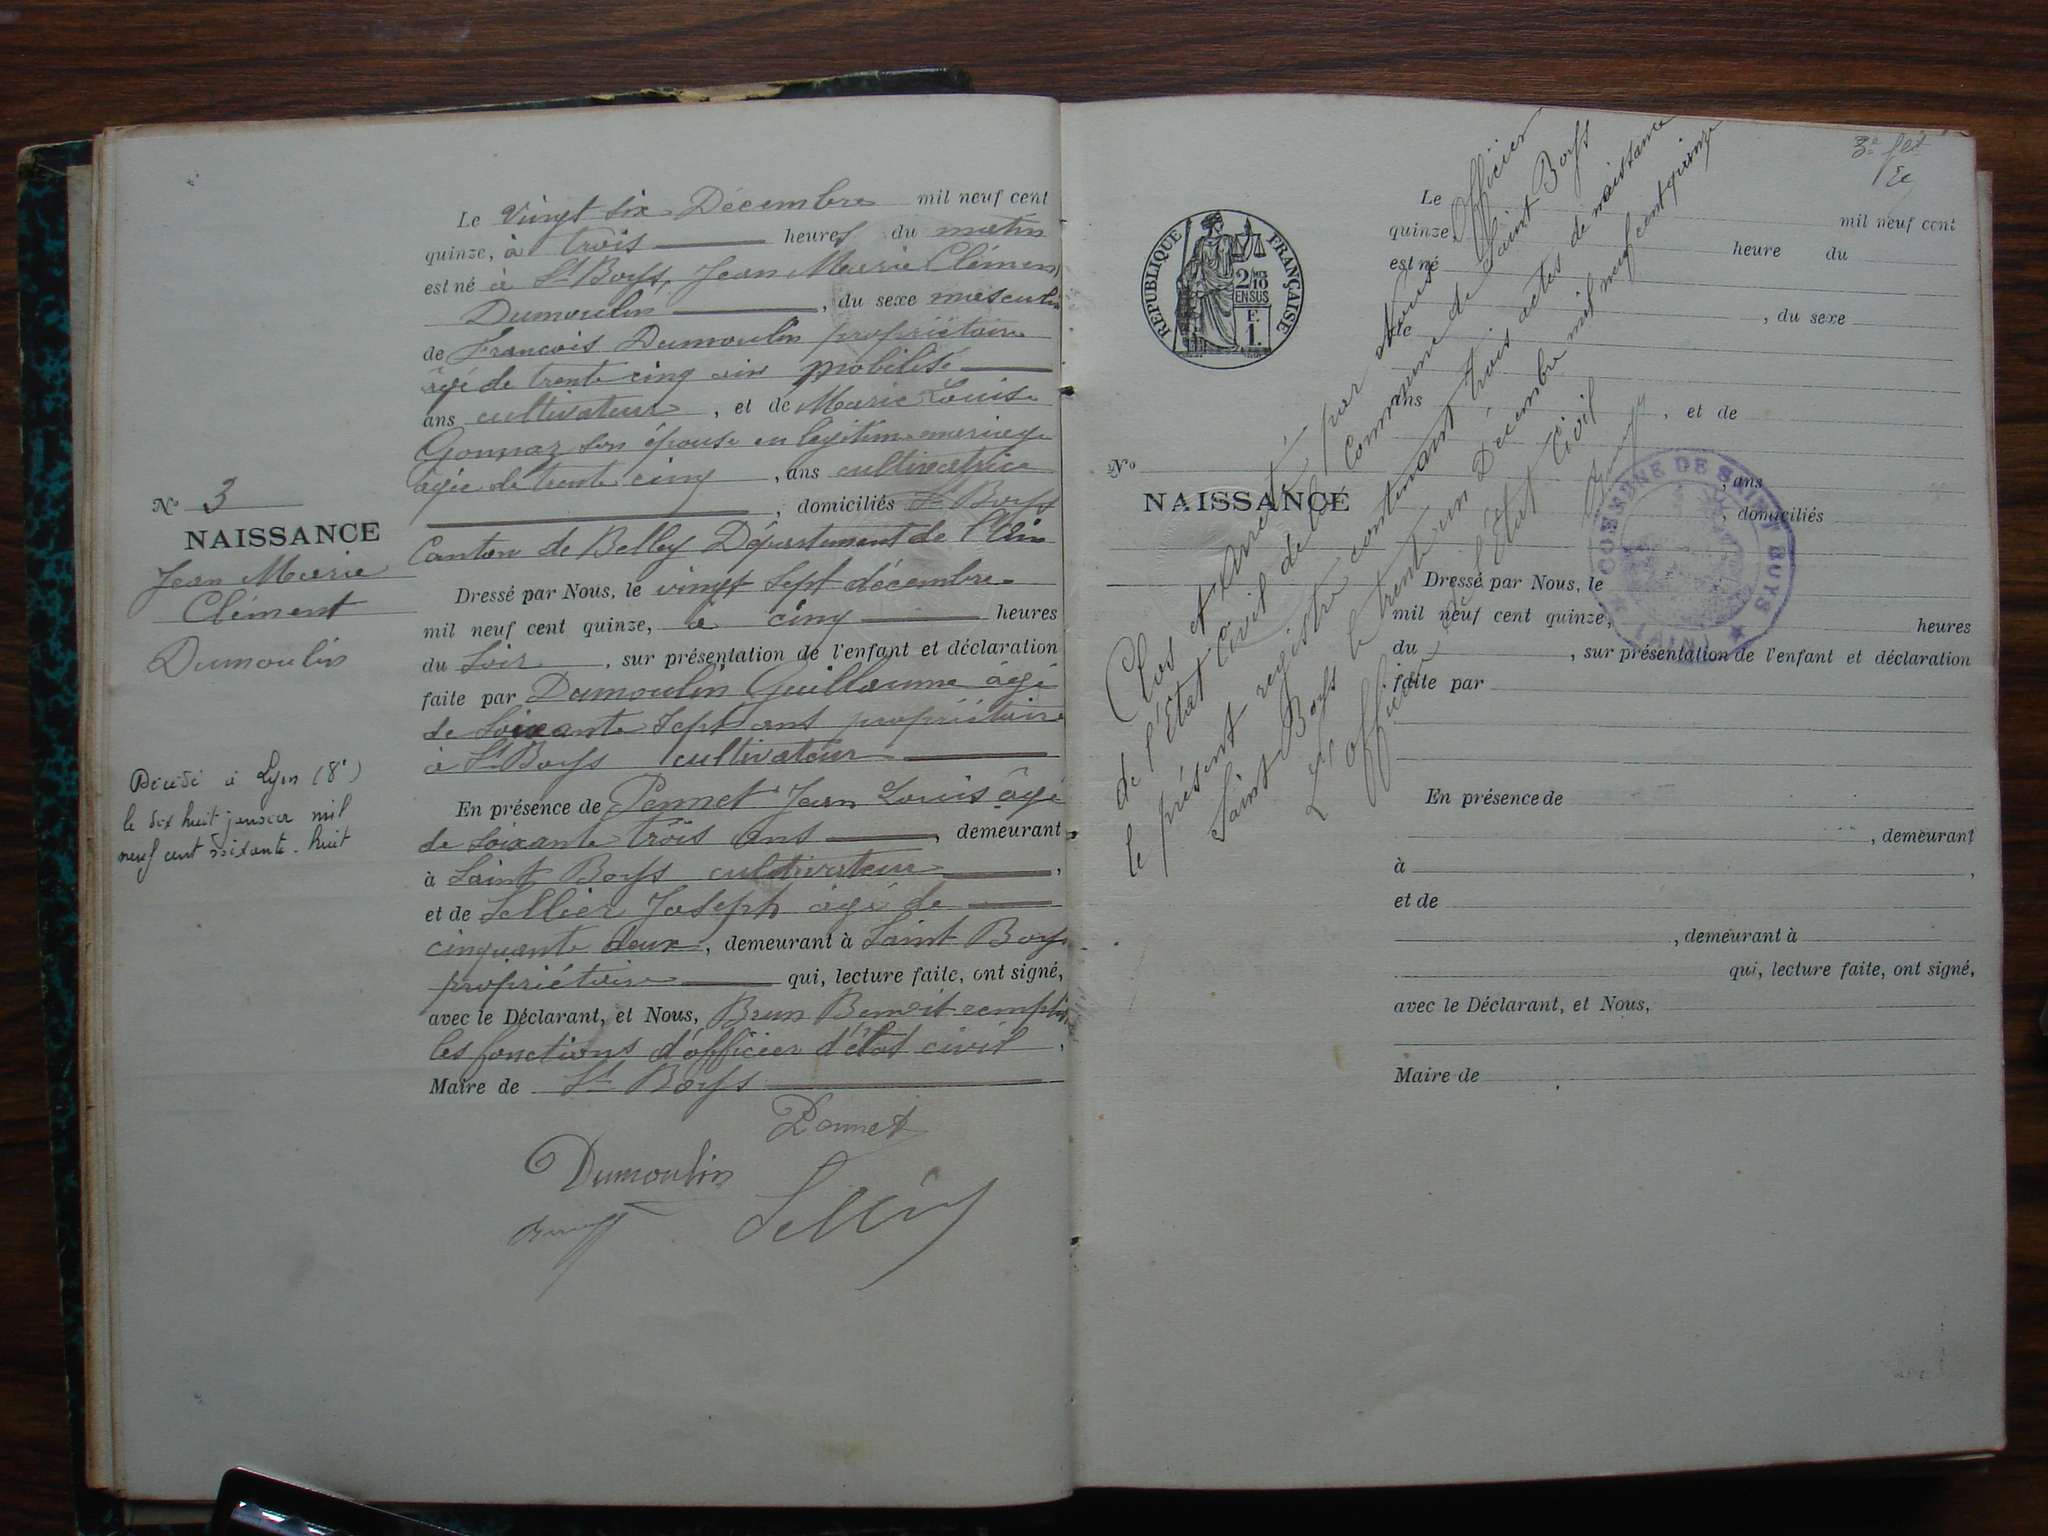 Le Vingt six Décembre mil neuf cent
quinze, à trois heures du matin
est né à St Boys, Jean Marie Clément
Dumoulin, du sexe masculin
de Francois Dumoulin propriétaire
âgé de trente cinq ans mobilisé
ans cultivateur, et de Marie Louise
Gonnaz son épouse en légitime mariage
âgée de trente cinq, ans cultivatrice
, domiciliés St Boys
Canton de Belley Département de l'Ain
Nº 3
NAISSANCE
Jean Marie
Clément
Dumoulin
Décédé à Lyon (8e)
le dix huit janvier mil
neuf cent soixante-huit
Dressé par Nous, le vingt Sept décembre
mil neuf cent quinze, à cinq heures
du Soir, sur présentation de l'enfant et déclaration
faite par Dumoulin Guillaume âgé
de Soixante Sept ans propriétaire
à St Boys cultivateur
En présence de Pennet Jean Louis âgé
de soixante trois ans, demeurant
à Saint Boys cultivateur,
et de Sellier Joseph âgé de
cinquante deux, demeurant à Saint Boys
propriétaire qui, lecture faite, ont signé,
avec le Déclarant, et Nous, Brun Benoit remplis
les fonctions d'officier d'état civil,
Maire de St Boys
Pennet
Dumoulin
Sellier
RÉPUBLIQUE FRANÇAISE
2/10
EN SUS
F.
1.
Le mil neuf cent
quinze, heure du
est né
, du sexe
de
ans , et de
Nº
NAISSANCE
, ans
, domiciliés
Dressé par Nous, le
mil neuf cent quinze, heures
du , sur présentation de l'enfant et déclaration
faite par
En présence de
, demeurant
à ,
et de
, demeurant à
qui, lecture faite, ont signé,
avec le Déclarant, et Nous,
Maire de
Clos et Arrêté par Nous Officier
de l'Etat Civil de la Commune de Saint Boys
le présent registre contenant trois actes de naissance
Saint Boys le trente un Décembre mil neuf cent quinze
L'officier de l'Etat Civil
COMMUNE DE SAINT BOYS
(AIN)